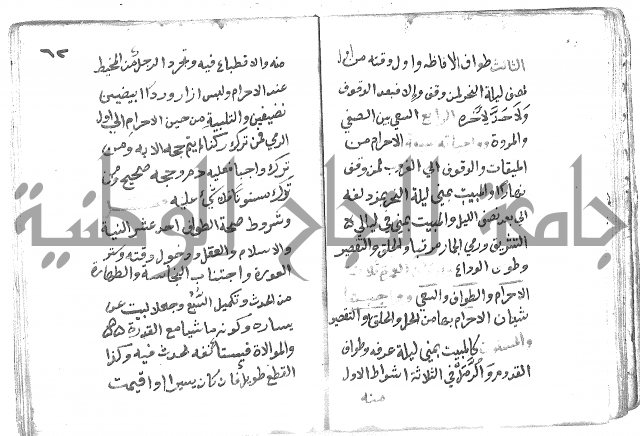 الثالث طواف الافاظه واول وقته من اول
نصف ليلة النحر لمن وقف والا فبعد الوقوف
ولا حد لاخره الرابع السعي بين الصفي
والمروة الاحرام من
الميقات والوقوف الى الغروب لمن وقف
نهارا والمبيت بمنى ليلة النحر بمزدلفه
الى بعد نصف الليل والمبيت بمنى في ليالي
التشريق ورمي الجمار مرتبا والحلق والتقصير
وطواف الوداع
الاحرام والطواف والسعي
شيان الاحرام بها من الحل والحلق او التقصير
كالمبيت بمنى ليلة عرفه وطواف
القدوم والرمل في الثلاثة اشواط الاول
منه
٦٢
منه والاضطباع فيه وتجرد الرجل من المخيط
عند الاحرام ولبس ازار وردا ابيضين
نضيفين والتلبية من حين الاحرام الى اول
الرمي فمن ترك ركنا لم يتم حجه الا به ومن
ترك واجبا عليه دم وحجه صحيح ومن
ترك مسنونا فلا شي عليه
وشروط صحة الطواف احد عشر النية
والاسلام والعقل ودخول وقته وستر
العورة واجتناب النجاسة والطهارة
من الحدث وتكميل السبع وجعل البيت عن
يساره وكونه ماشيا مع القدرة
والموالاة فيستانفه لحدث فيه وكذا
القطع طويل فان كان يسيرا او اقيمت
جامعة النجاح الوطنية